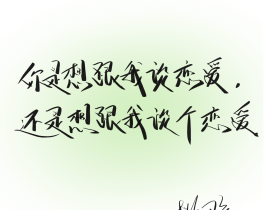 你是想跟我谈恋爱，
还是想跟我谈个恋爱